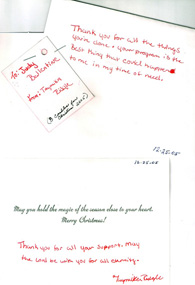 Thank you for all the things
you've done - your program is the
best thing that could happened
to me in my time of need.
To: Judy
From:
12-25-05
12-25-05
May you hold the magic of the season close to your heart.
Merry Christmas!
Thank you for all your support. May
the Lord be with you for all eternity.